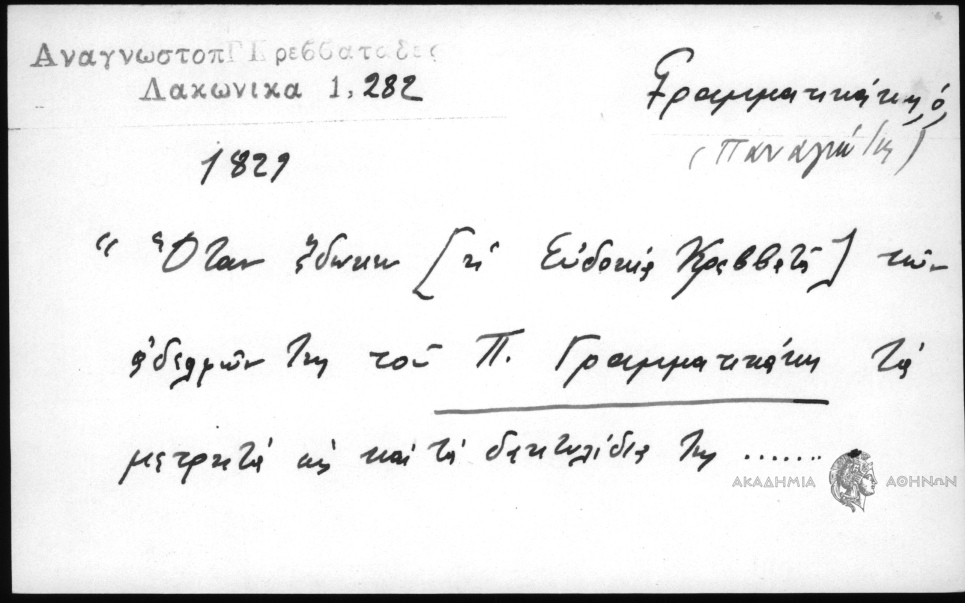 Αναγνωστοπ Γ Κρεββαταδες
Λακωνικα 1, 282
Γραμματικάκης, ὁ
(Παναγιώτης)
1829
"Ὅταν ἔδωκεν [ἡ Εὐδοκία Κρεββατᾶ] τῶν
ἀδελφῶν της τοῦ Π. Γραμματικάκη τὰ
μετρητά ὡς καὶ τὰ δακτυλίδια της ......
ΑΚΑΔΗΜΙΑ ΑΘΗΝΩΝ